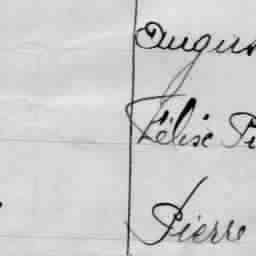 Augus
Félix Pi
Pierre